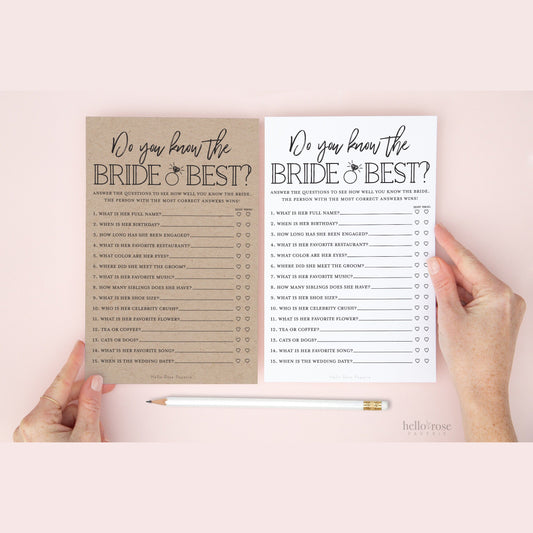 Do you know the
BRIDE BEST?
ANSWER THE QUESTIONS TO SEE HOW WELL YOU KNOW THE BRIDE.
THE PERSON WITH THE MOST CORRECT ANSWERS WINS!
1. WHAT IS HER FULL NAME?
2. WHEN IS HER BIRTHDAY?
3. HOW LONG HAS SHE BEEN ENGAGED?
4. WHAT IS HER FAVORITE RESTAURANT?
5. WHAT COLOR ARE HER EYES?
6. WHERE DID SHE MEET THE GROOM?
7. WHAT IS HER FAVORITE MUSIC?
8. HOW MANY SIBLINGS DOES SHE HAVE?
9. WHAT IS HER SHOE SIZE?
10. WHO IS HER CELEBRITY CRUSH?
11. WHAT IS HER FAVORITE FLOWER?
12. TEA OR COFFEE?
13. CATS OR DOGS?
14. WHAT IS HER FAVORITE SONG?
15. WHEN IS THE WEDDING DATE?
Hello Rose Paperie
Do you know the
BRIDE BEST?
ANSWER THE QUESTIONS TO SEE HOW WELL YOU KNOW THE BRIDE.
THE PERSON WITH THE MOST CORRECT ANSWERS WINS!
1. WHAT IS HER FULL NAME?
2. WHEN IS HER BIRTHDAY?
3. HOW LONG HAS SHE BEEN ENGAGED?
4. WHAT IS HER FAVORITE RESTAURANT?
5. WHAT COLOR ARE HER EYES?
6. WHERE DID SHE MEET THE GROOM?
7. WHAT IS HER FAVORITE MUSIC?
8. HOW MANY SIBLINGS DOES SHE HAVE?
9. WHAT IS HER SHOE SIZE?
10. WHO IS HER CELEBRITY CRUSH?
11. WHAT IS HER FAVORITE FLOWER?
12. TEA OR COFFEE?
13. CATS OR DOGS?
14. WHAT IS HER FAVORITE SONG?
15. WHEN IS THE WEDDING DATE?
Hello Rose Paperie
hello rose
PAPERIE